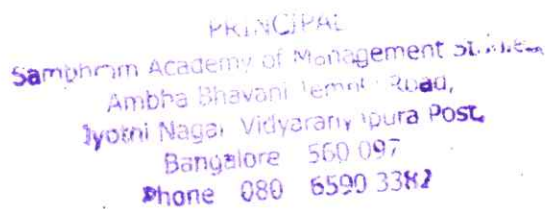 PRINCIPAL
Sambhram Academy of Management Studies
Ambha Bhavani Temple Road,
Jyothi Nagar Vidyaranyapura Post,
Bangalore 560 097
Phone 080 6590 3382